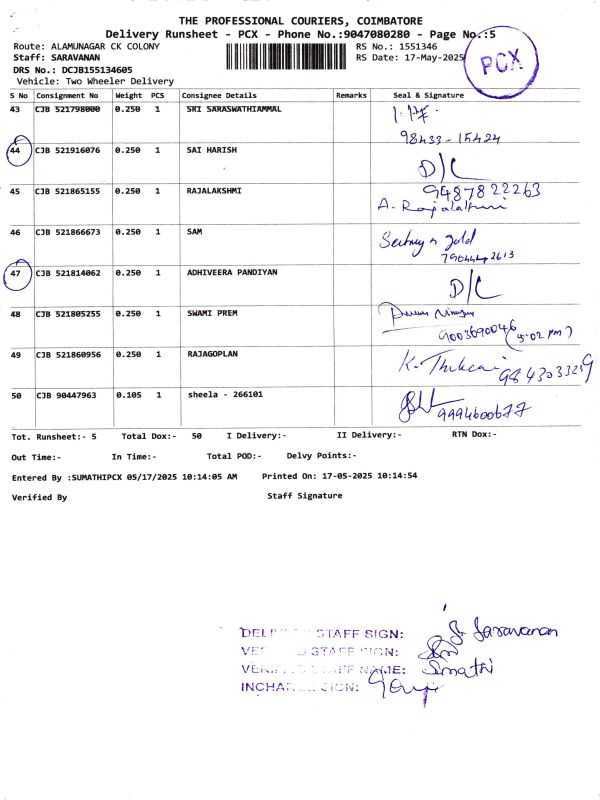 THE PROFESSIONAL COURIERS, COIMBATORE
Delivery Runsheet - PCX - Phone No.:9047080280 - Page No.:5
Route: ALAMUNAGAR CK COLONY
RS No.: 1551346
Staff: SARAVANAN
RS Date: 17-May-2025
PCX
DRS No.: DCJB155134605
Vehicle: Two Wheeler Delivery
S No Consignment No Weight PCS Consignee Details Remarks Seal & Signature
43 CJB 521798000 0.250 1 SRI SARASWATHIAMMAL
98433-15424
44 CJB 521916076 0.250 1 SAI HARISH D/C
45 CJB 521865155 0.250 1 RAJALAKSHMI 9487822263
46 CJB 521866673 0.250 1 SAM
gold
47 CJB 521814062 0.250 1 ADHIVEERA PANDIYAN D/C
48 CJB 521805255 0.250 1 SWAMI PREM
9003690046 (5:02 PM)
49 CJB 521860956 0.250 1 RAJAGOPLAN K.
50 CJB 90447963 0.105 1 sheela - 266101 9994600677
Tot. Runsheet:- 5 Total Dox:- 50 I Delivery:- II Delivery:- RTN Dox:-
Out Time:- In Time:- Total POD:- Delvy Points:-
Entered By :SUMATHIPCX 05/17/2025 10:14:05 AM Printed On: 17-05-2025 10:14:54
Verified By Staff Signature
STAFF SIGN: Saravanan
STAFF SIGN:
STAFF NAME: Sumathi
SIGN: